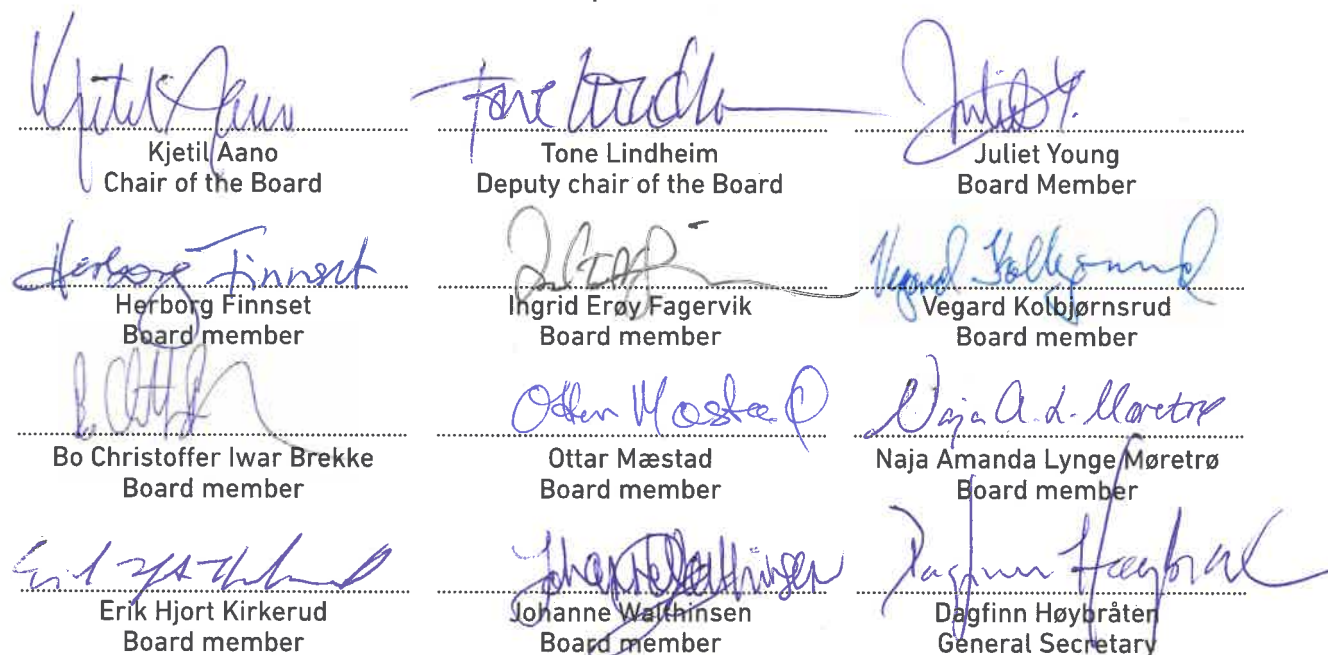 Kjetil Aano
Kjetil Aano
Chair of the Board
Tone
Tone Lindheim
Deputy chair of the Board
Juliet Y.
Juliet Young
Board Member
Herborg Finnset
Herborg Finnset
Board member
Ingrid Erøy Fagervik
Board member
Vegard Kolbjørnsrud
Vegard Kolbjørnsrud
Board member
Bo Christoffer Iwar Brekke
Board member
Ottar Mæstad
Ottar Mæstad
Board member
Naja A. L. Møretrø
Naja Amanda Lynge Møretrø
Board member
Erik Hjort Kirkerud
Board member
Johanne Walthinsen
Board member
Dagfinn Høybråten
General Secretary